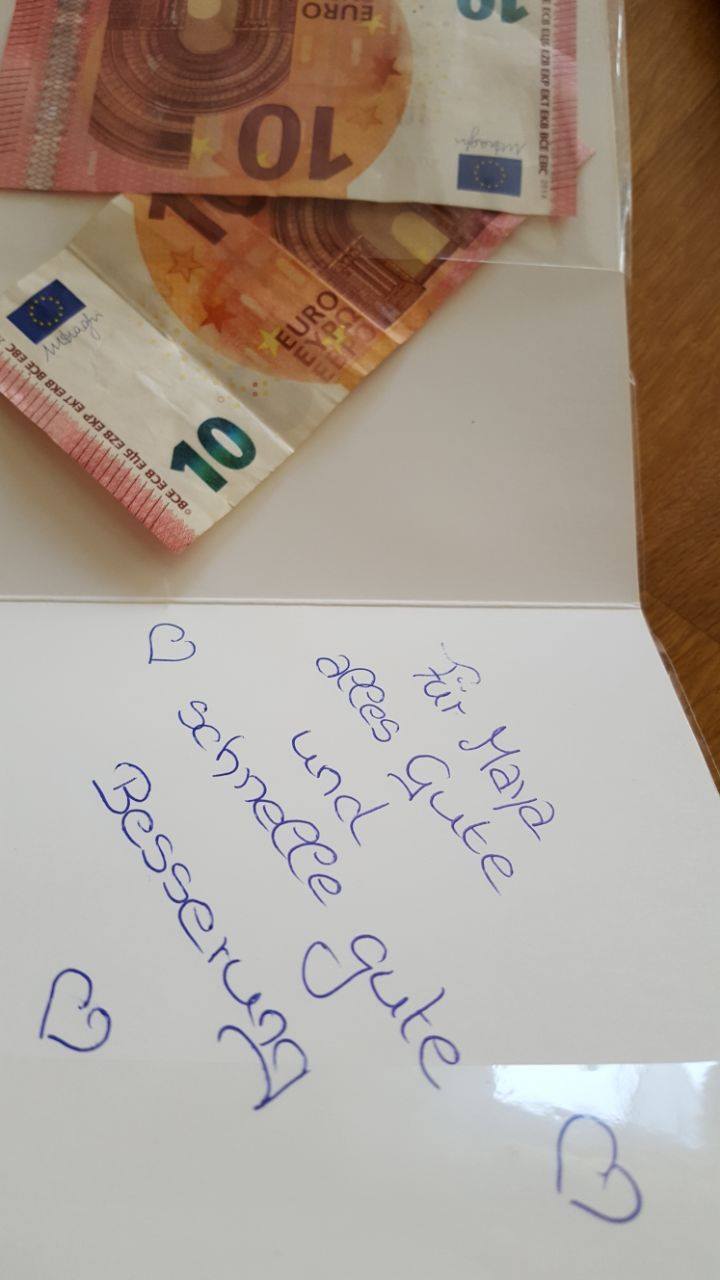 für Maya
alles Gute
und
schnelle gute
Besserung
10
EURO
10
BCE ECB ЕЦБ EZB EKP EKT EKB BĊE EBC
10
EURO
ΕΥΡΩ
10
BCE ECB ЕЦБ EZB EKP EKT EKB BĊE EBC